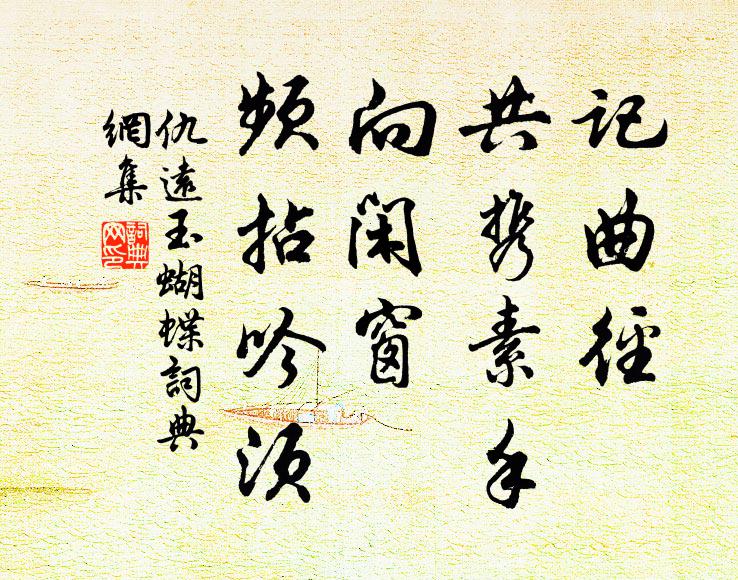 记曲径
共携素手
向闲窗
频拈吟须
仇遠玉蝴蝶詞典
網集
詞典
网印